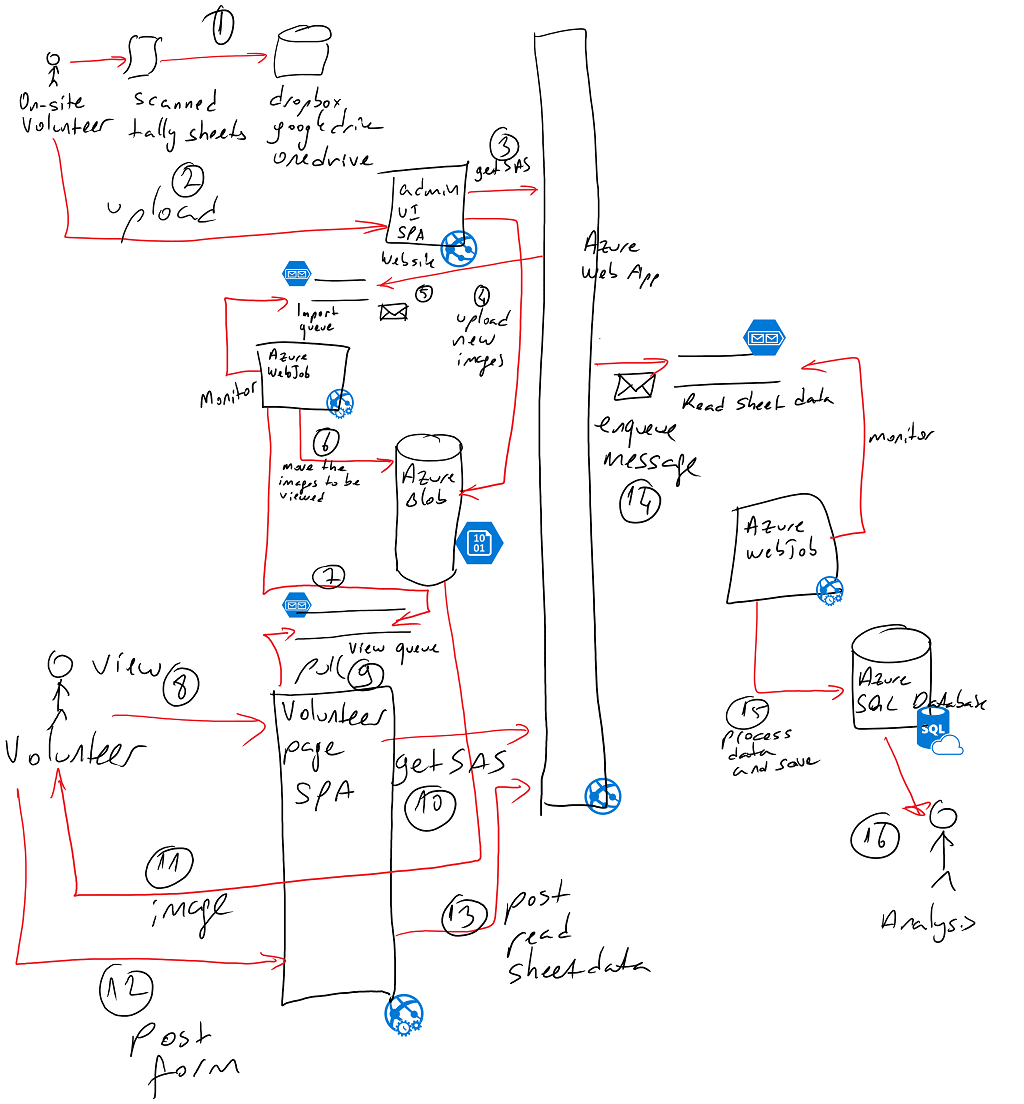 1
On-site
Volunteer
scanned
tally sheets
dropbox,
google drive
onedrive
2
upload
admin
UI
SPA
Website
3
get SAS
Azure
Web App
Import
queue
5
4
upload
new
images
Azure
WebJob
Monitor
6
move the
images to be
viewed
Azure
Blob
10
01
7
View queue
enqueue
message
14
Read sheet data
monitor
Azure
WebJob
15
process
data
and save
Azure
SQL Database
SQL
16
Analysis
View
8
Volunteer
pull
9
Volunteer
page
SPA
get SAS
10
11
image
12
Post
form
13
post
read
sheet data